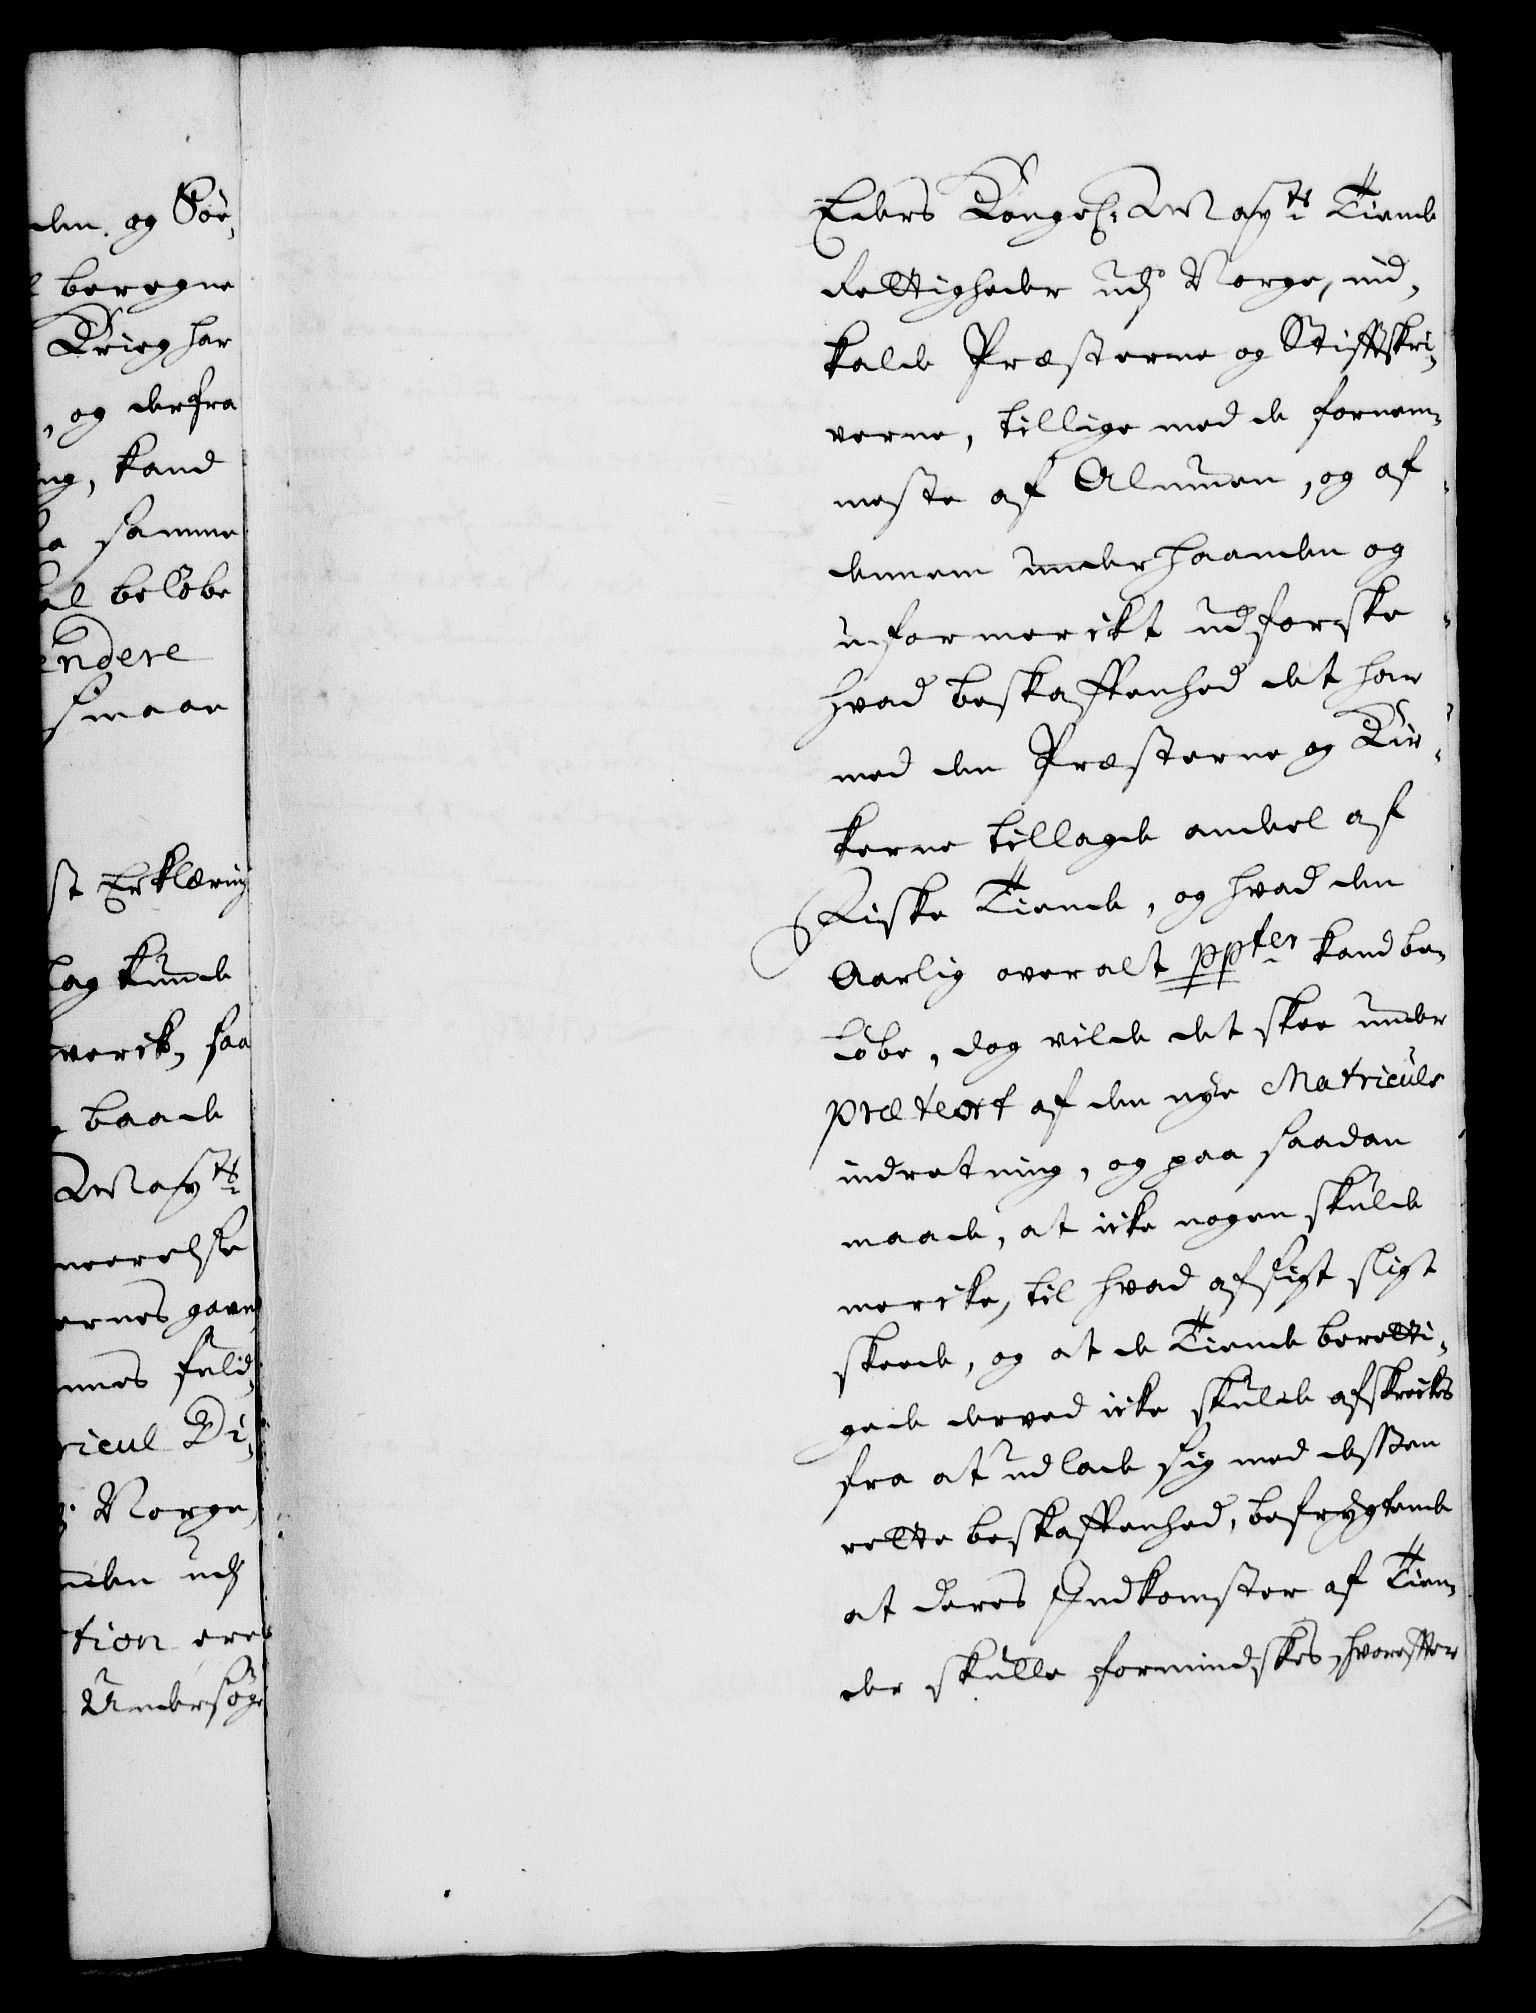 den og Søe-
beregne
Krieg har
, og derfra
ng, kand
samme
al beløbe
endere
smaae
st Erklæring
lag kunde
verck, saa
baade
Mayts
neerelse
ernes gavn
nnes feld,
ricul Di,
Norge,
nden udj
tion ere
Undersøge
Eders Kongel: Mayts Tiende
Rettigheder udj Norge, ind,
kalde Præsterne og Stiftskri,
verne, tillige med de fornem,
meste af Almuen, og af
dennem underhaanden og
uformerckt udforske
hvad beskaffenhed det har
med den Præsterne og Kir,
kerne tillagde andeel af
Fiske Tiende, og hvad den
Aarlig overalt ppter kand be,
løbe, dog vilde det skee under
prætext af den nye Matriculs
indretning, og paa saadan
maade, at icke nogen skulde
mercke, til hvad afsigt sligt
skeede, og at de Tiende beretti,
gede derved icke skulde afskreckes
fra at udlade sig med dessen
rette beskaffenhed, befrygtende
at deres Indkomster af Tien,
der skulle formindskes, hvorefter